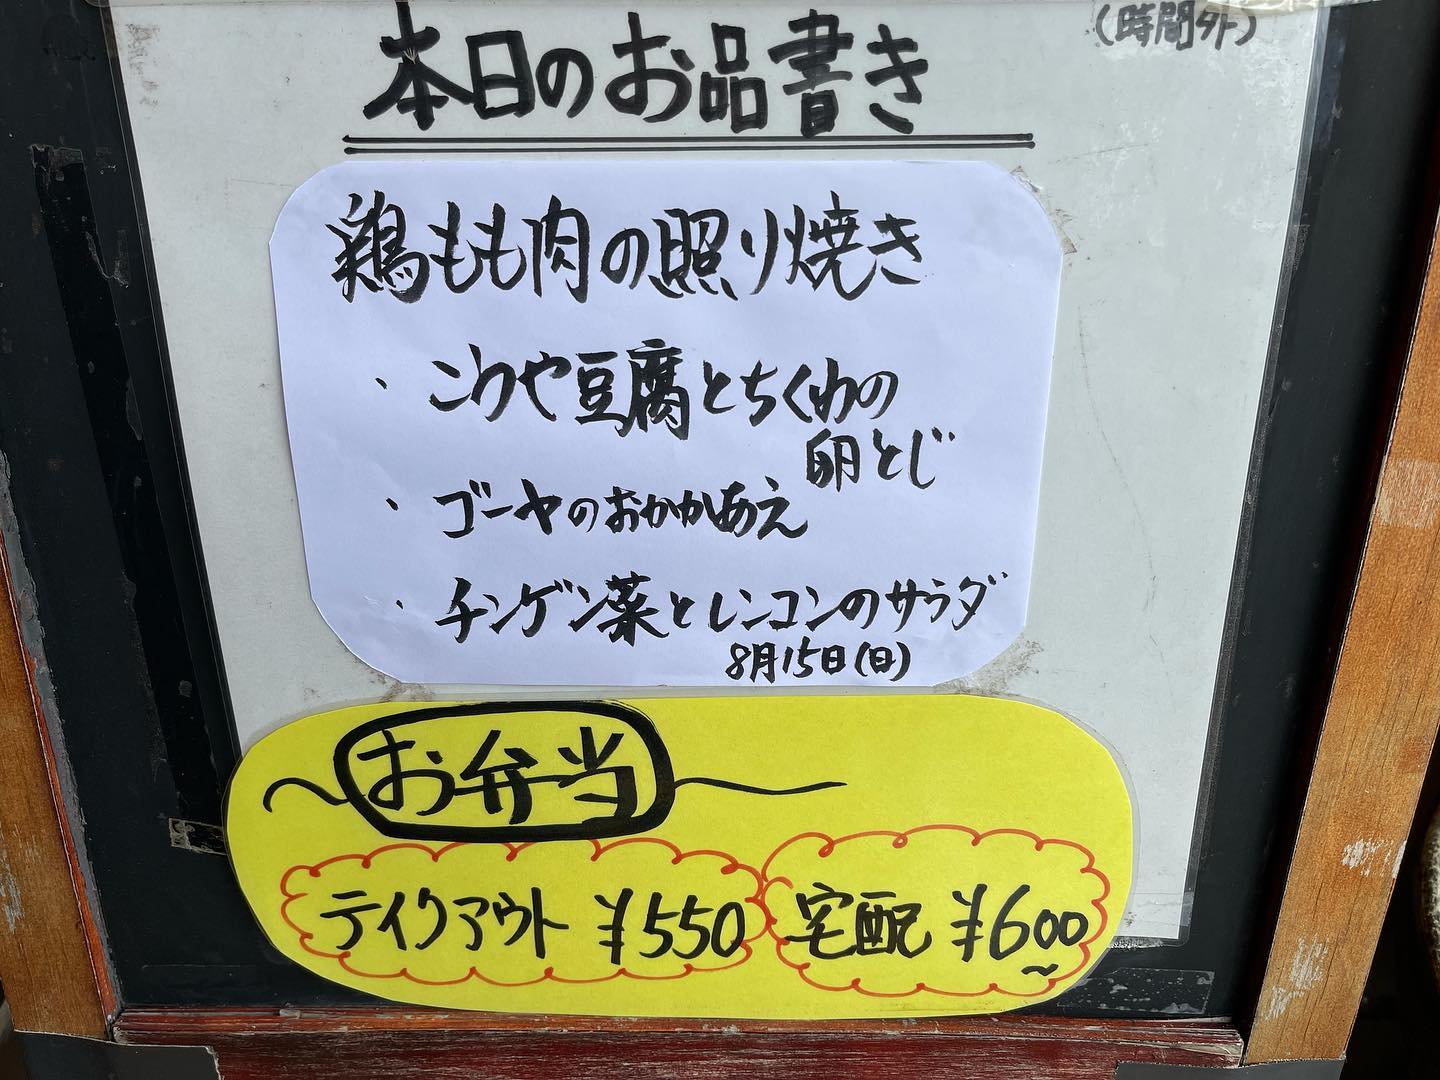 (時間外)
本日のお品書き
鶏もも肉の照り焼き
・こうや豆腐とちくわの
卵とじ
・ゴーヤのおかかあえ
・チンゲン菜とレンコンのサラダ
8月15日(日)
お弁当
テイクアウト ¥550
宅配 ¥600~